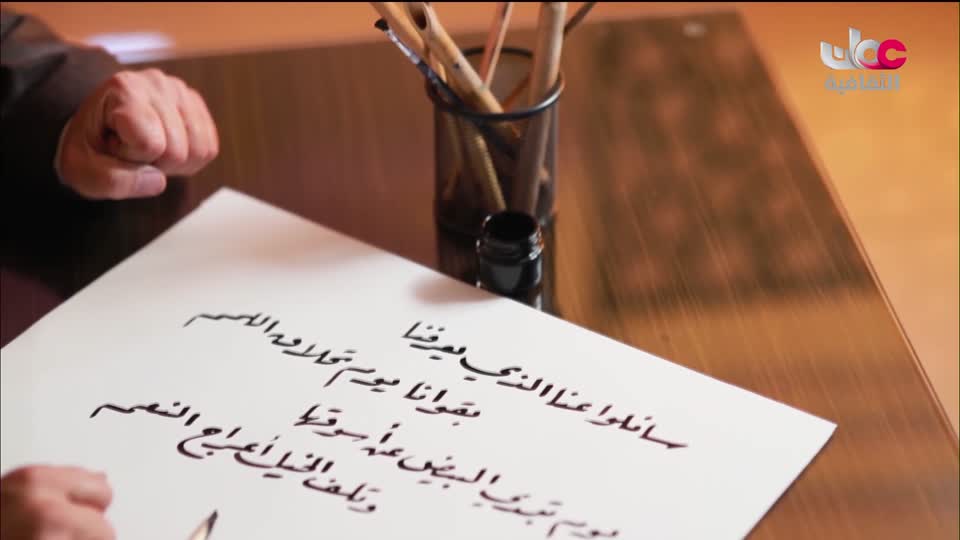 عمان
الثقافية
سائلوا عنا الذي يعرفنا
بقوانا يوم تحلاق اللمم
يوم تبدي البيض عن أسوقها
وتلف الخيل أعراج النعم